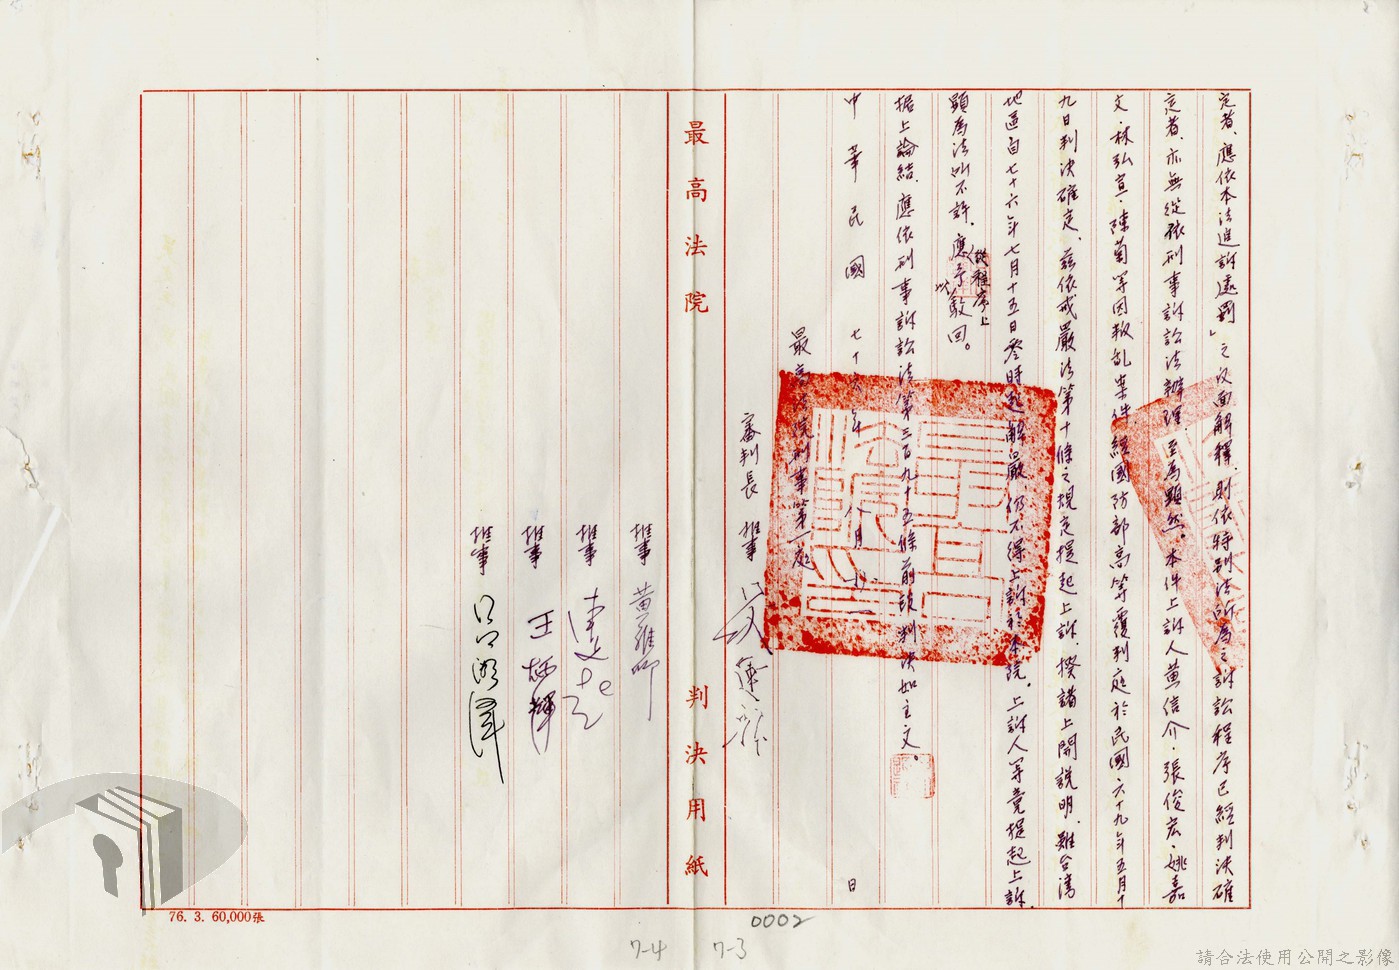 定者、應依本法進訴處罰」之反面解釋、則依特別法所為之訴訟程序已經判決確
定者、亦無從依刑事訴訟法辦理至為顯然。本件上訴人黃信介、張俊宏、姚嘉
文、林弘宣、陳菊等因叛亂案件、經國防部高等覆判庭於民國六十九年五月十
九日判決確定、茲依戒嚴法第十條之規定提起上訴、揆諸上開說明、雖台灣
地區自七十六年七月十五日零時起解嚴、仍不得上訴於本院。上訴人等竟提起上訴、
顯為法所不許、應從程序上予以駁回。
据上論結、應依刑事訴訟法第三百九十五條前段判決如主文。
中華民國七十六年八月廿一日
最高法院刑事第一庭
審判長推事
最高法院 判決用紙
推事 黃雅卿
推事
推事 王炳輝
推事
76. 3. 60,000張
0002
7-4 7-3
請合法使用公開之影像